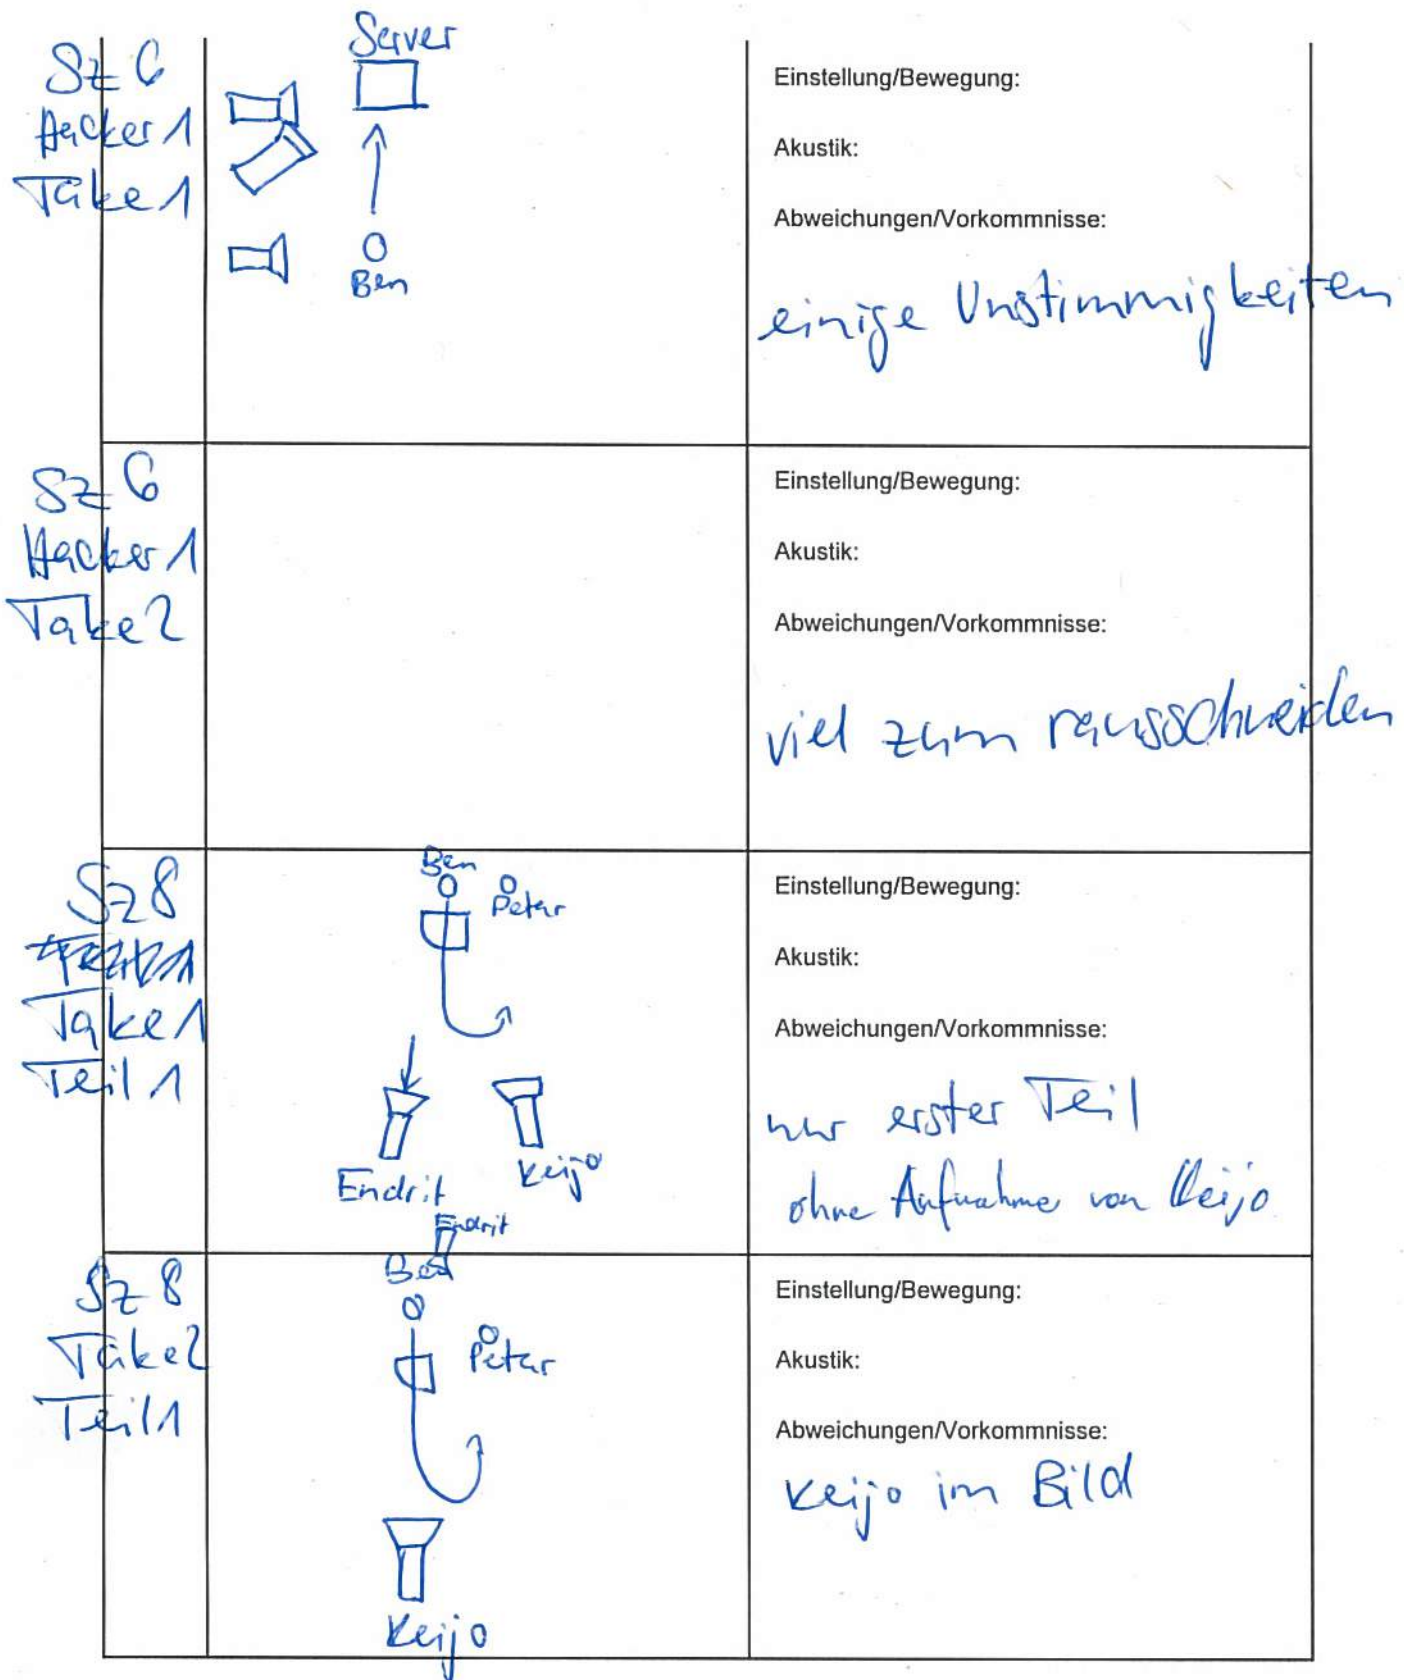 Sz 6
Hacker 1
Take 1
Server
Ben
Einstellung/Bewegung:
Akustik:
Abweichungen/Vorkommnisse:
einige Unstimmigkeiten
Sz 6
Hacker 1
Take 2
Einstellung/Bewegung:
Akustik:
Abweichungen/Vorkommnisse:
viel zum rausschneiden
Sz 8
Take 1
Teil 1
Ben
Petar
Endrit
Keijo
Einstellung/Bewegung:
Akustik:
Abweichungen/Vorkommnisse:
nur erster Teil
ohne Aufnahme von Keijo
Sz 8
Take 2
Teil 1
Endrit
Ben
Petar
Keijo
Einstellung/Bewegung:
Akustik:
Abweichungen/Vorkommnisse:
Keijo im Bild